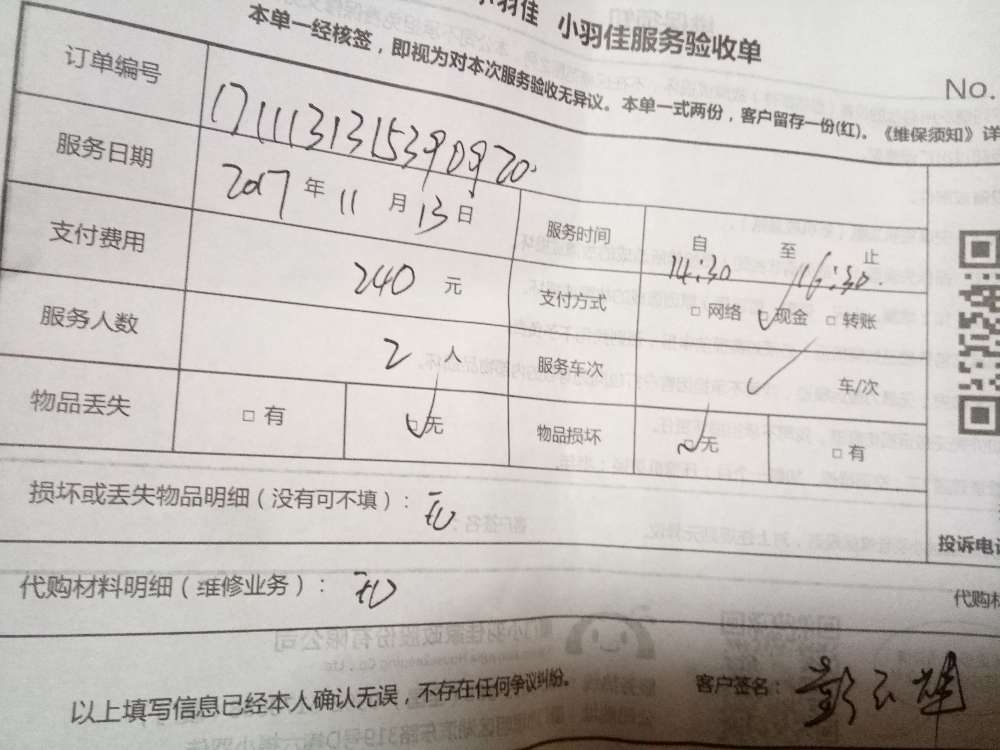 小羽佳 小羽佳服务验收单
No.
本单一经核签，即视为对本次服务验收无异议。本单一式两份，客户留存一份(红)。《维保须知》详
订单编号 1711131315390920
服务日期 2017 年 11 月 13 日 服务时间 自 14:30 至 16:30 止
支付费用 240 元 支付方式 □ 网络 □ 现金 □ 转账
服务人数 2 人 服务车次 车/次
物品丢失 □ 有 □ 无 物品损坏 □ 无 □ 有
损坏或丢失物品明细（没有可不填）：无
投诉电话
代购材料明细（维修业务）：无
代购材
以上填写信息已经本人确认无误，不存在任何争议纠纷。 客户签名：彭云雄